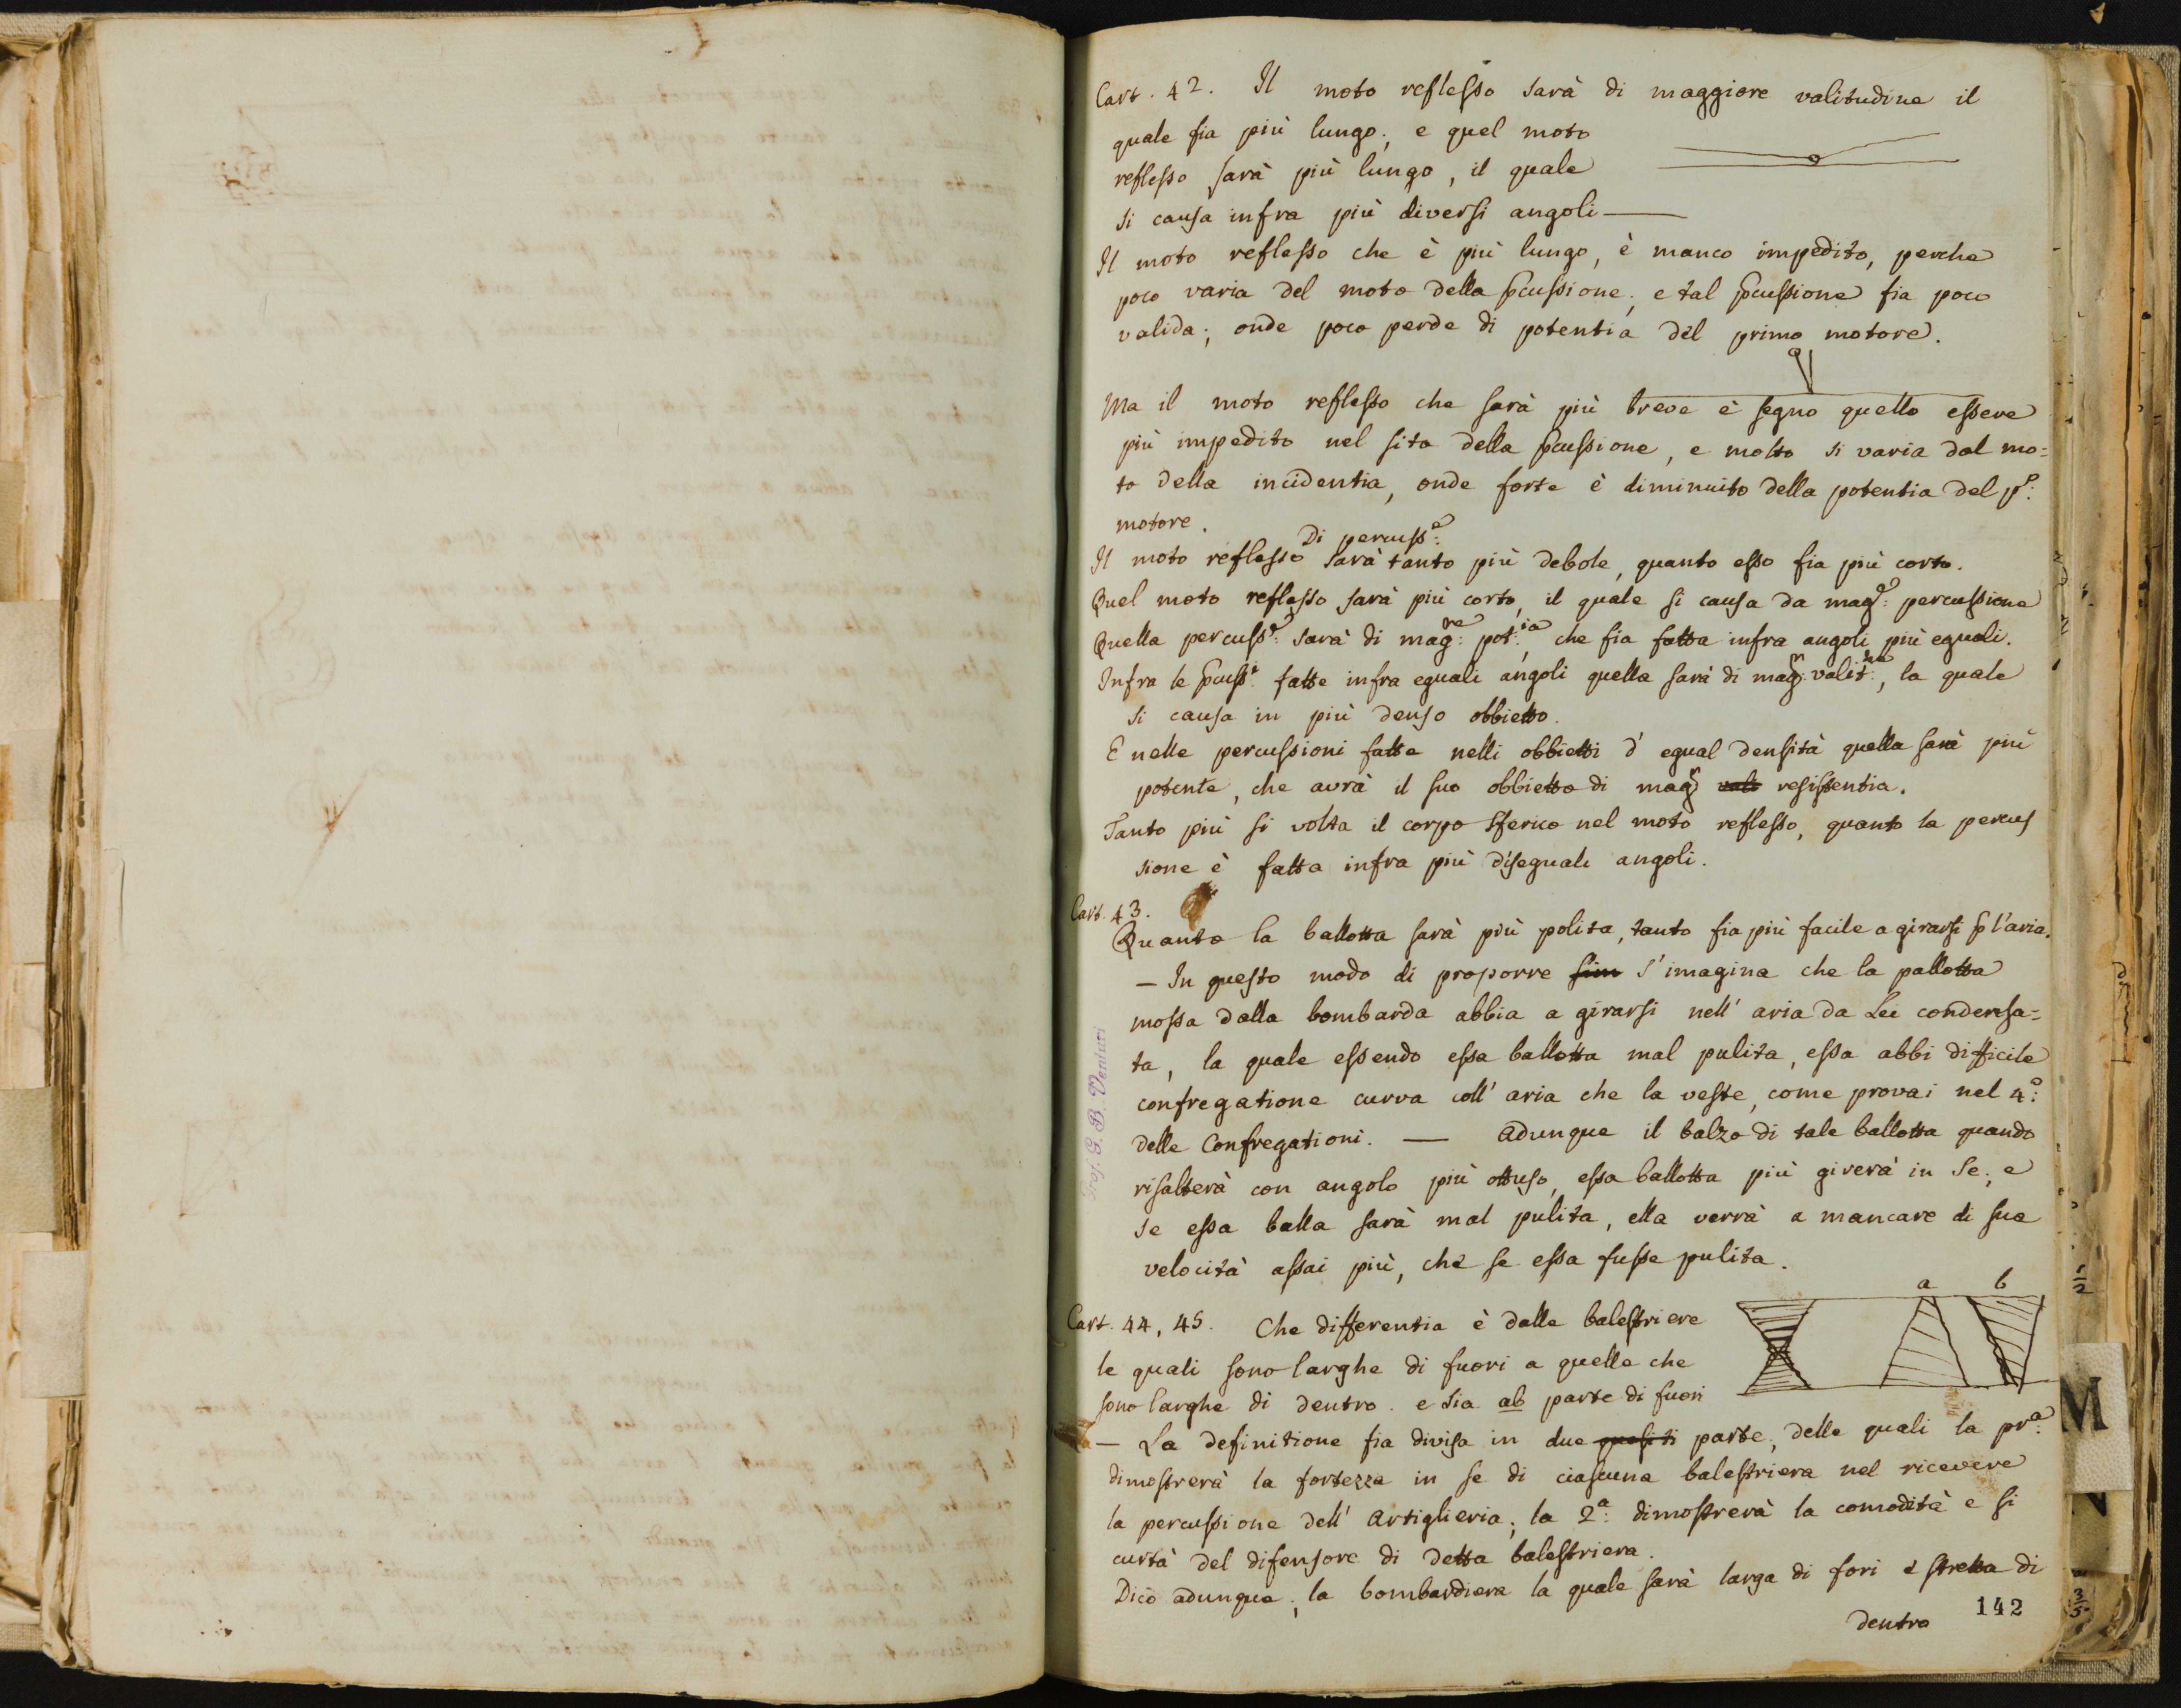 Cart. 42. Il moto reflesso sarà di maggiore valitudine il
quale fia più lungo; e quel moto
reflesso sarà più lungo, il quale
si causa infra più diversi angoli —
Il moto reflesso che è più lungo, è manco impedito, perche
poco varia del moto della pcussione; e tal pcussione fia poco
valida; onde poco perde di potentia del primo motore.
Ma il moto reflesso che sarà più breve è segno quello essere
più impedito nel sito della pcussione, e molto si varia dal mo=
to della incidentia, onde forte è diminuito della potentia del p.º:
motore.
Di percuss.e:
Il moto reflesso sarà tanto più debole, quanto esso fia più corto.
Quel moto reflesso sarà più corto, il quale si causa da mag.e: percussione
Quella percuss.e: sarà di mag.re: pot.ia:, che fia fatta infra angoli più eguali.
Infra le pcuss.i: fatte infra eguali angoli quella sarà di mag.r valit.ne:, la quale
si causa in più denso obbietto.
E nelle percussioni fatte nelli obbietti d' egual densità quella sarà più
potente, che avrà il suo obbietto di mag.r vali resistentia.
Tanto più si volta il corpo sferico nel moto reflesso, quanto la percus
sione è fatta infra più diseguali angoli.
Cart. 43.
Quanto la ballotta sarà più polita, tanto fia più facile a girarsi p l'aria.
— In questo modo di proporre sim s'imagina che la pallotta
mossa dalla bombarda abbia a girarsi nell' aria da Lei condensa=
ta, la quale essendo essa ballotta mal pulita, essa abbi difficile
confregatione curva coll' aria che la veste, come provai nel 4.º:
delle Confregationi. — Adunque il balzo di tale ballotta quando
risalterà con angolo più ottuso, essa ballotta più girerà in Se; e
se essa balla sarà mal pulita, ella verrà a mancare di sua
velocità assai più, che se essa fusse pulita.
Prof. G. B. Venturi
a b
Cart. 44, 45. Che differentia è dalle balestriere
le quali sono larghe di fuori a quelle che
sono larghe di dentro. e sia ab parte di fuori
— La definitione fia divisa in due quesiti parte; delle quali la pr.a:
dimostrerà la fortezza in se di ciascuna balestriera nel ricevere
la percussione dell' Artiglieria; la 2.a: dimostrerà la comodità e si
curtà del difensore di detta balestriera.
Dico adunque; la bombardiera la quale sarà larga di fori e stretta di
dentro
142